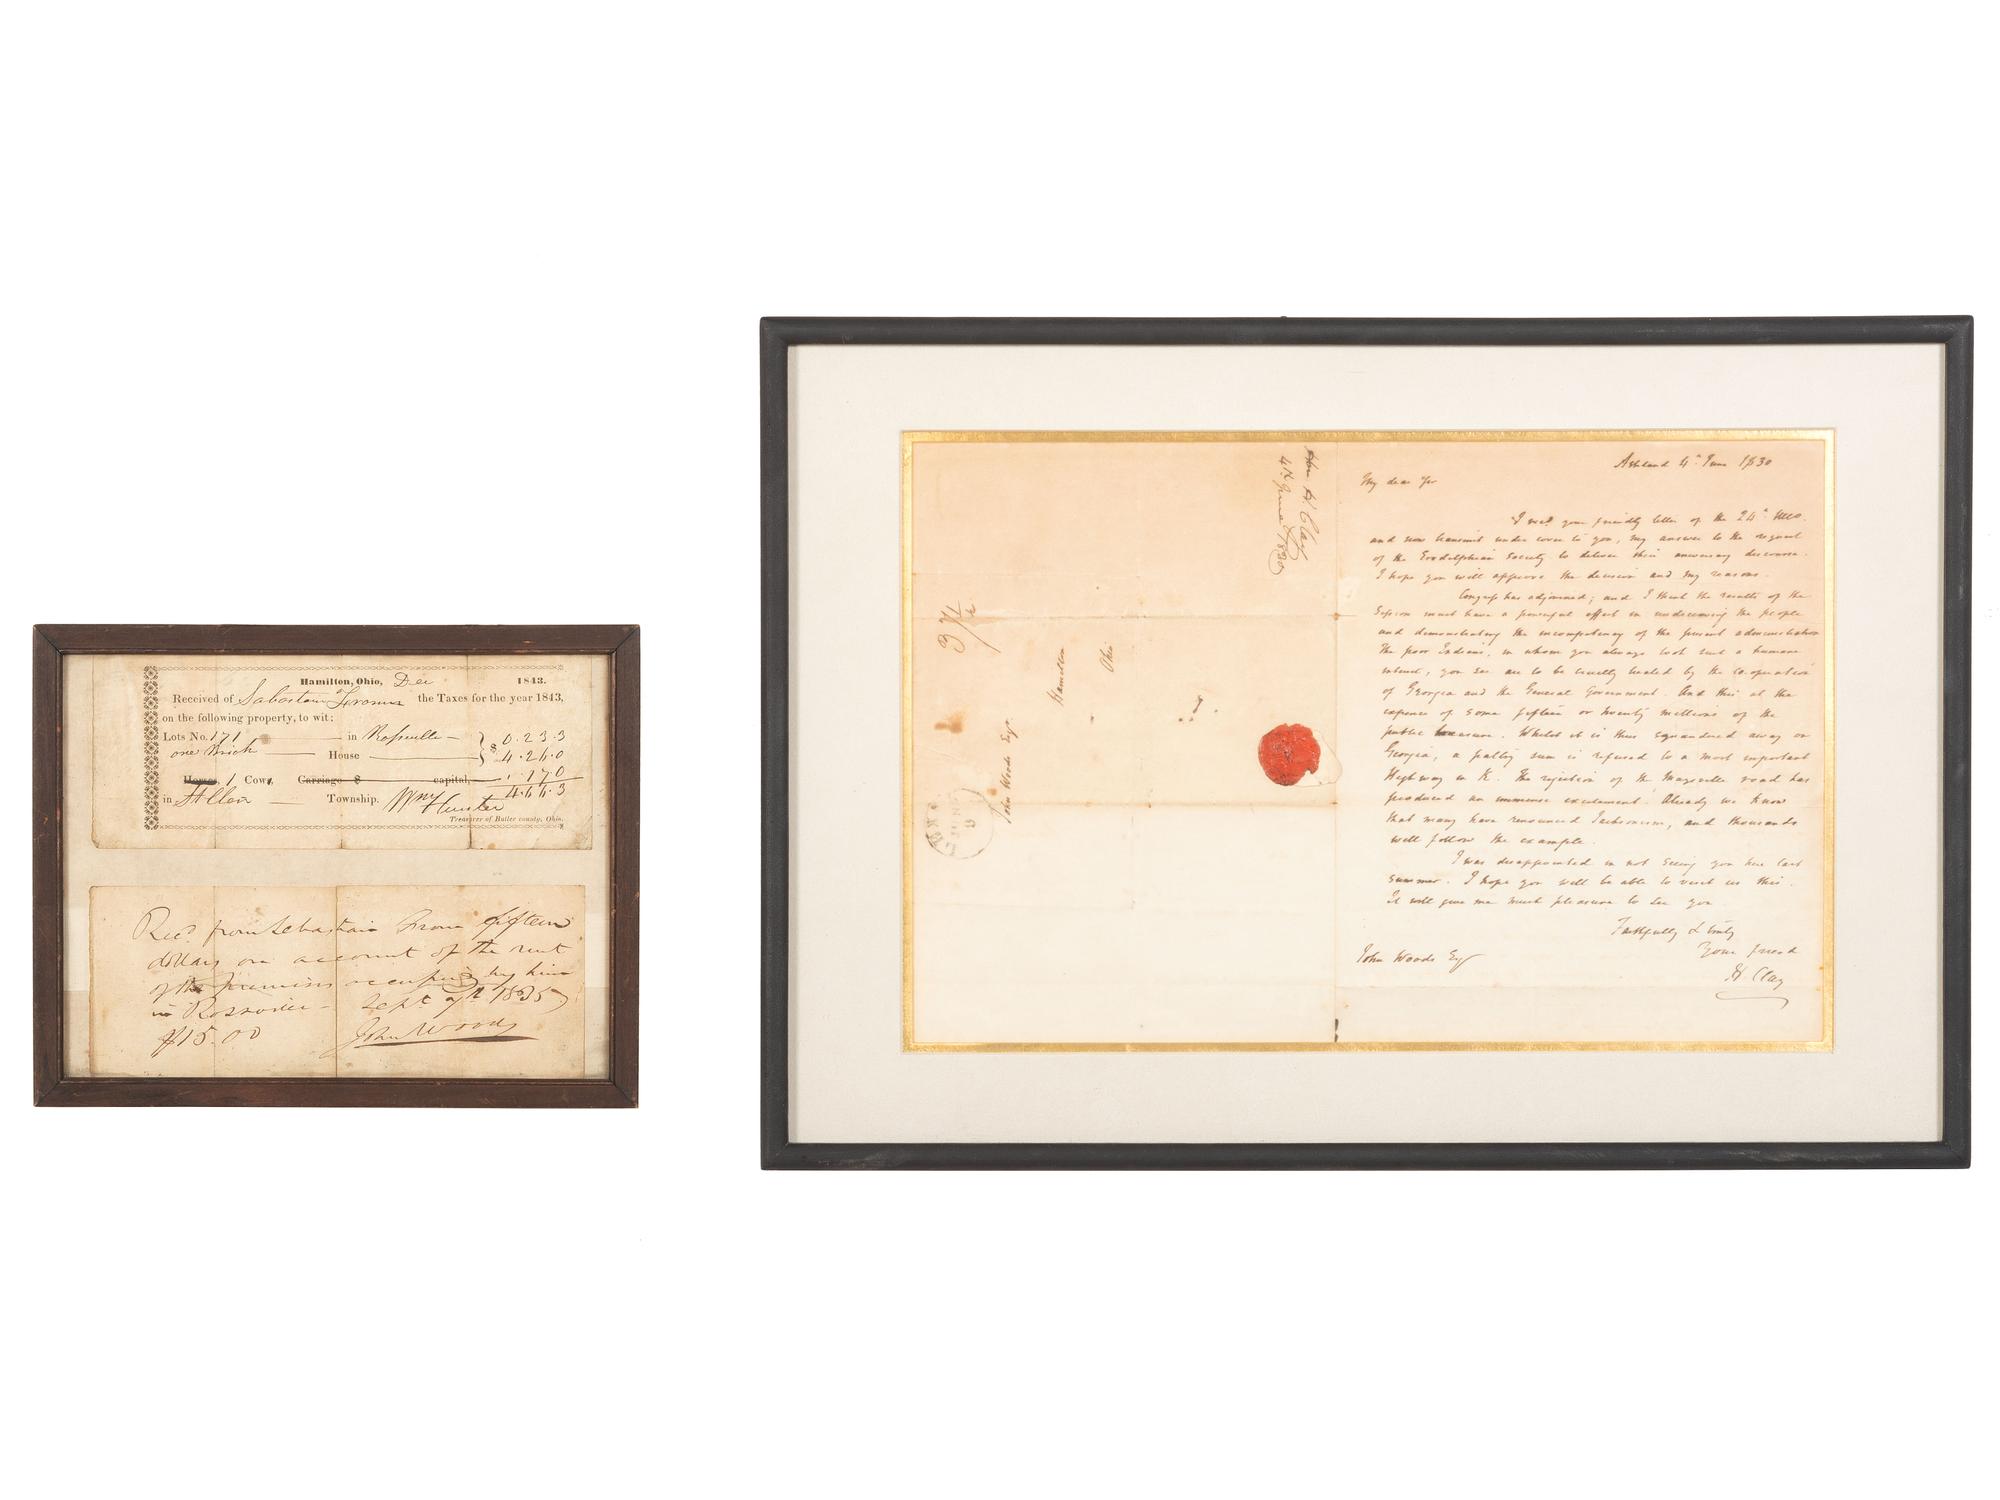 Hamilton, Ohio, Dec 1843.
Received of Sabastain the Taxes for the year 1843,
on the following property, to wit:
Lots No. 171 in Rossville
one Brick House
0.23.3
4.26.0
Horses, 1 Cows, Carriage $ capital,
.17.0
in Township.
4.66.3
Wm Hunter
Treasurer of Butler county, Ohio.
Recd. from Sebastain fifteen
dollars on account of the rent
of the premises occupied by him
in Rossville Sept 7th 1835
$15.00 John Woods
Hon H. Clay
4th June 1830
37½
John Woods Esqr.
Hamilton
Ohio
Ashland 4h. June 1830
My dear Sir
I recd. your friendly letter of the 24h. Ulto.
and now transmit under cover to you, my answer to the request
of the Erodelphian Society to deliver their anniversary discourse.
I hope you will approve the decision and my reasons.
Congress has adjourned; and I think the results of the
Session must have a powerful effect in undeceiving the people
and demonstrating the incompetency of the present administration
The poor Indians, in whom you always took such a humane
interest, you see are to be cruelly treated by the co-operation
of Georgia and the General Government. And this at the
expence of some fifteen or twenty millions of the
public treasure. Whilst it is thus squandered away on
Georgia, a paltry sum is refused to a most important
Highway in K. The rejection of the Maysville road has
produced an immense excitement. Already we know
that many have renounced Jacksonism, and thousands
will follow the example.
I was disappointed in not seeing you here last
summer. I hope you will be able to visit us this.
It will give me much pleasure to see you
Faithfully & truly
Your friend
H Clay
John Woods Esqr